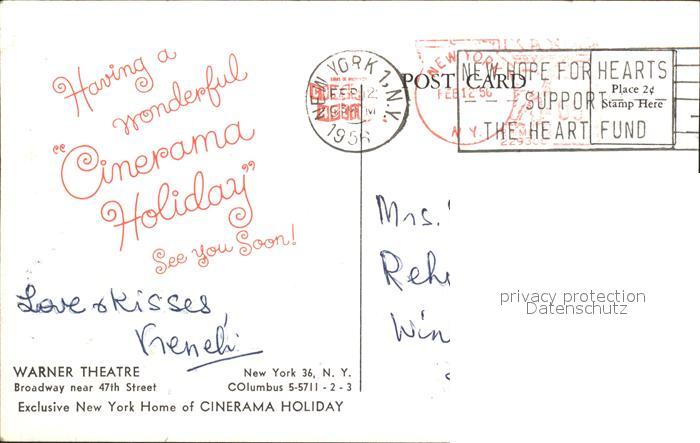 Having a
wonderful
"Cinerama
Holiday"
See you Soon!
Love & Kisses,
WARNER THEATRE
Broadway near 47th Street
New York 36, N. Y.
COlumbus 5-5711 - 2 - 3
Exclusive New York Home of CINERAMA HOLIDAY
NEW YORK 1, N.Y.
1956
POST CARD
NEW YORK
FEB 12 '56
N.Y.
NEW HOPE FOR HEARTS
SUPPORT
THE HEART FUND
Place 2¢
Stamp Here
Mrs.
Reh
Win
privacy protection
Datenschutz